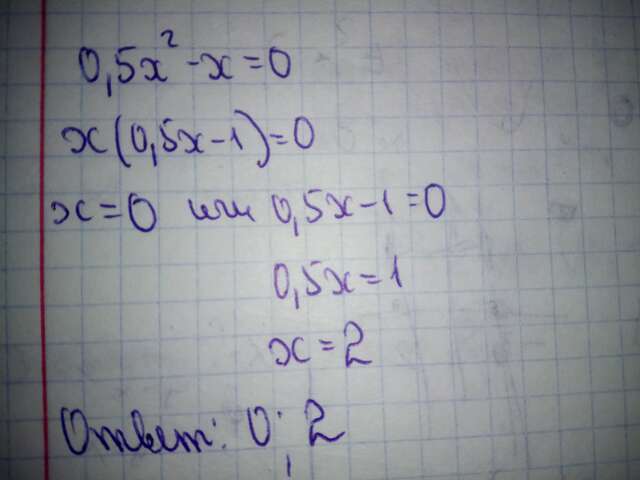 0,5x²-x=0
x(0,5x-1)=0
x=0 или 0,5x-1=0
0,5x=1
x=2
Ответ: 0; 2